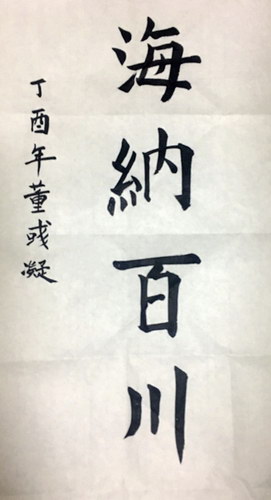 海納百川
丁酉年董彧凝